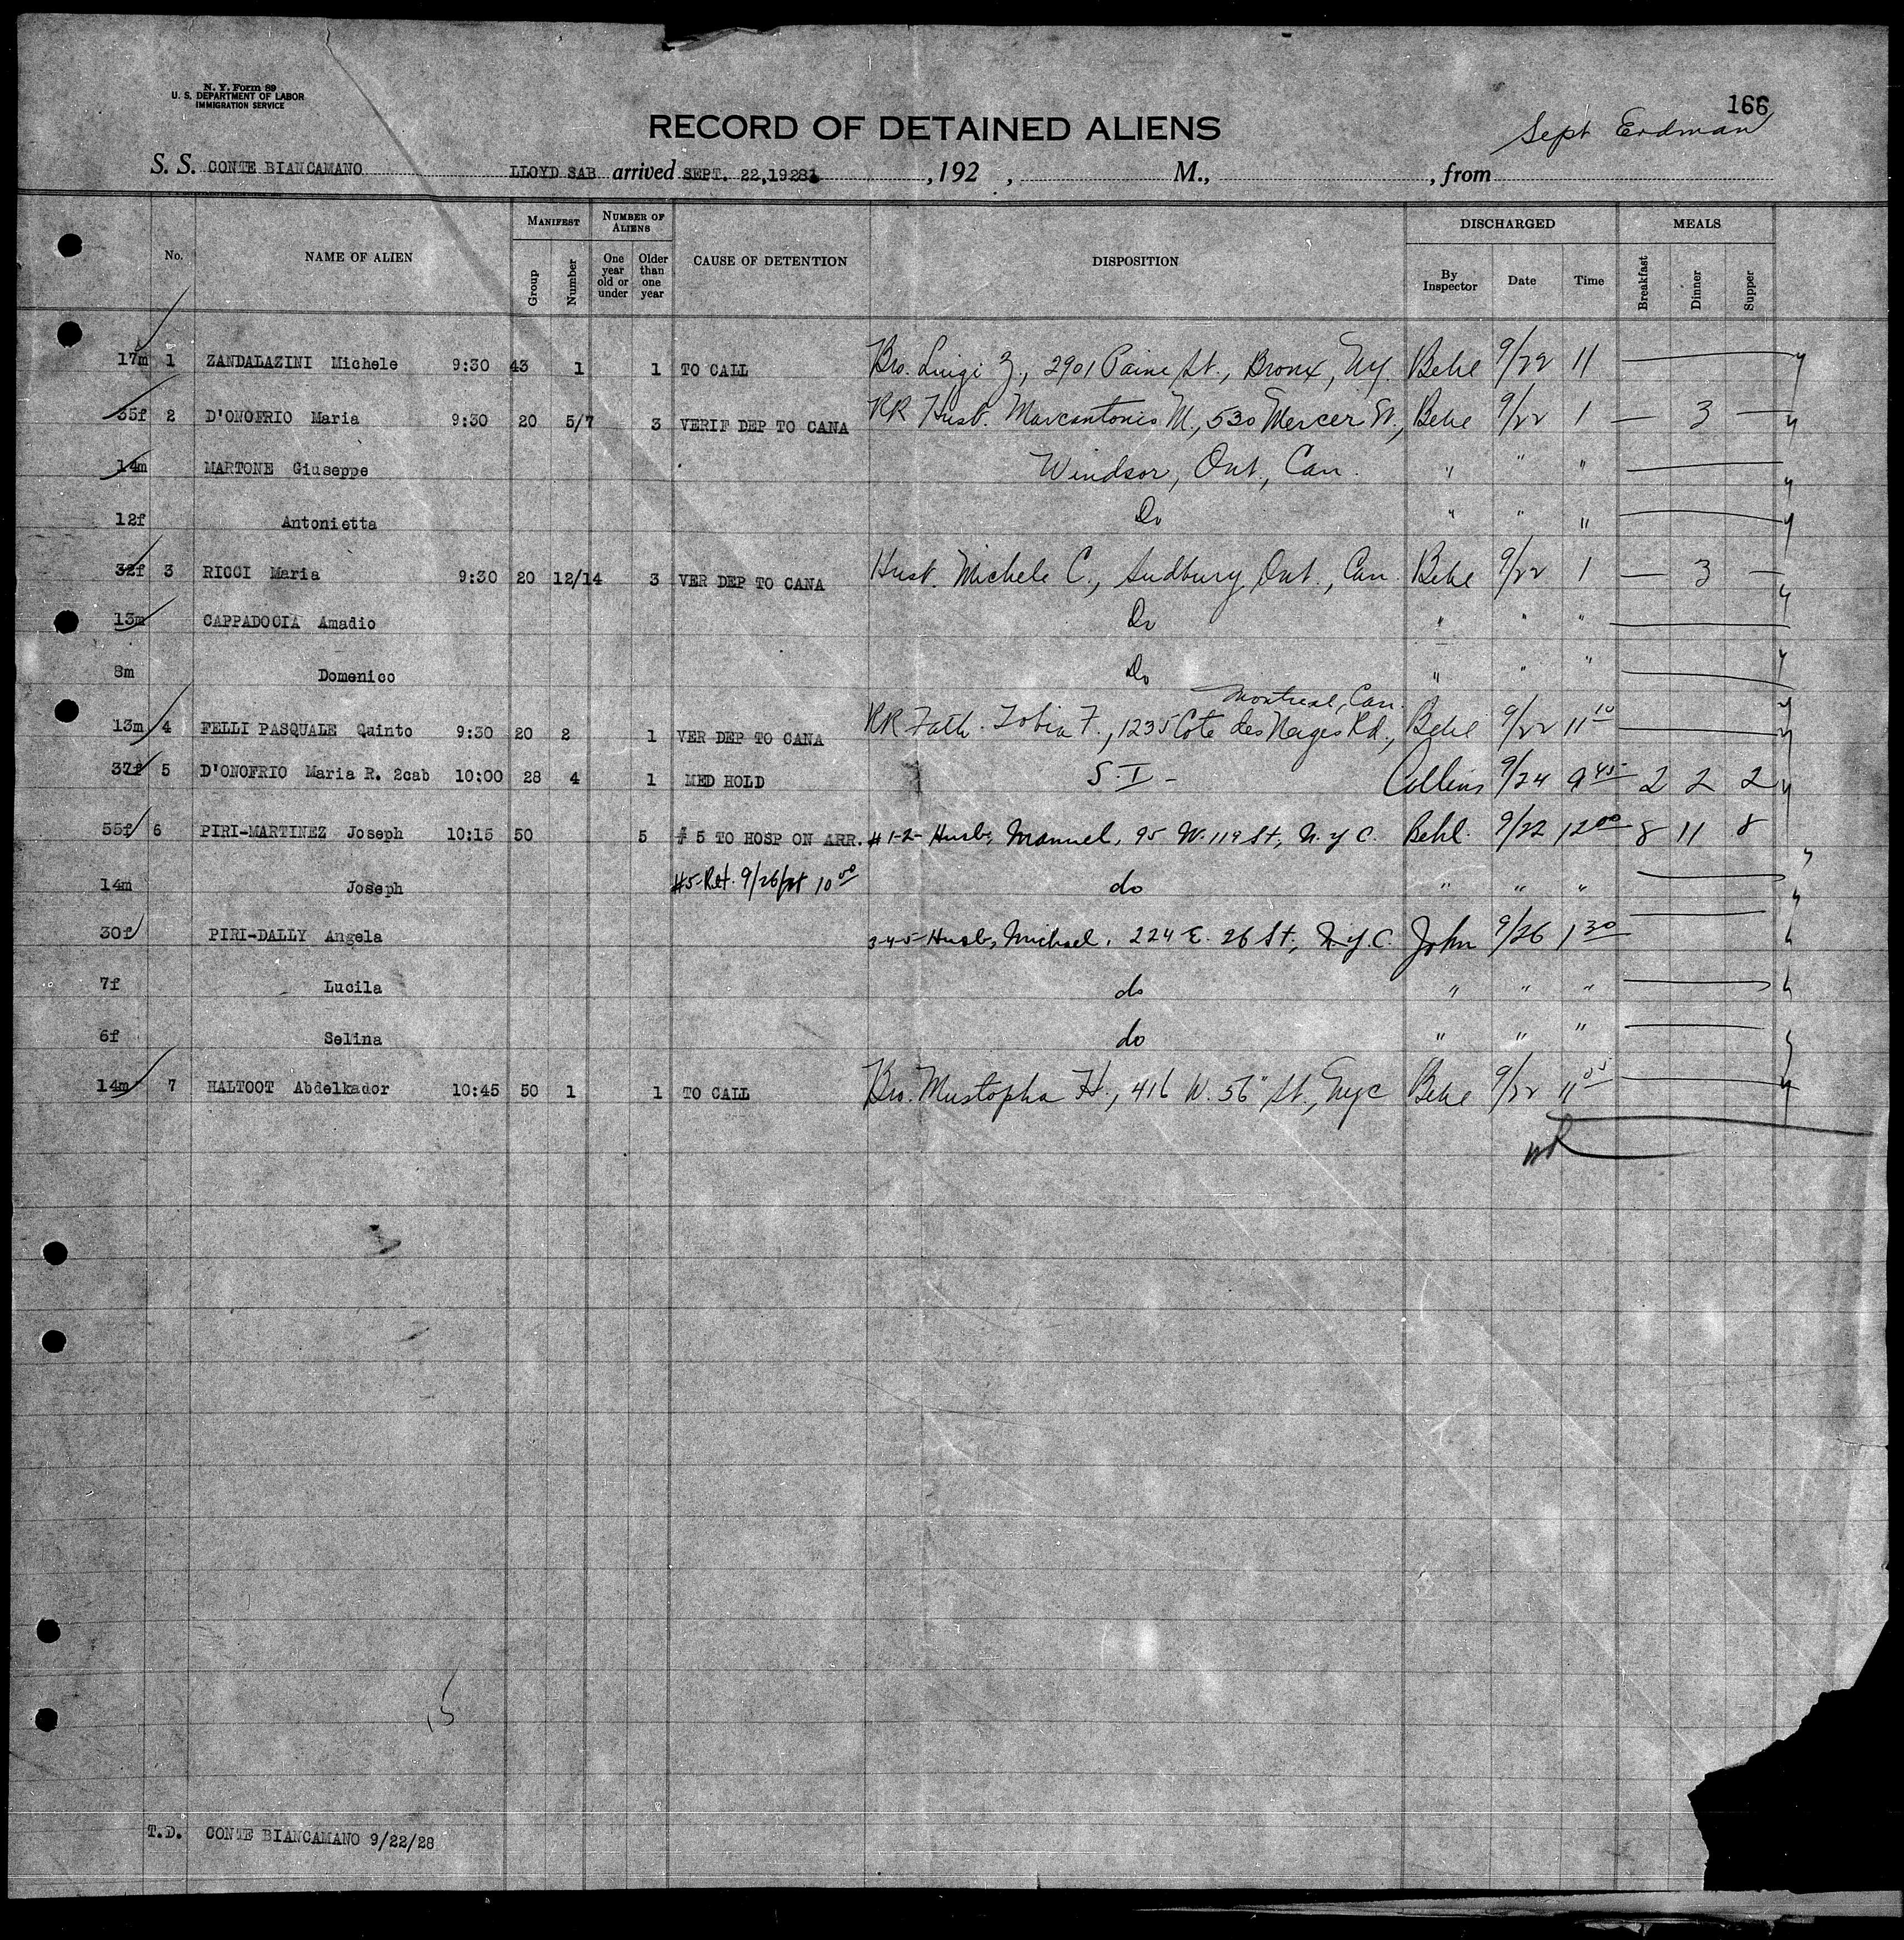 N. Y. Form 89
U. S. DEPARTMENT OF LABOR
IMMIGRATION SERVICE
166
RECORD OF DETAINED ALIENS
Sept Erdman
S. S. CONTE BIANCAMANO LLOYD SAB arrived SEPT. 22,1928 , 192 , M., , from
No. NAME OF ALIEN MANIFEST Group Number NUMBER OF ALIENS One year old or under Older than one year CAUSE OF DETENTION DISPOSITION DISCHARGED By Inspector Date Time MEALS Breakfast Dinner Supper
17m 1 ZANDALAZINI Michele 9:30 43 1 1 TO CALL Bro. Luigi Z., 2901 Paine St., Bronx, NY. Behe 9/22 11
35f 2 D'ONOFRIO Maria 9:30 20 5/7 3 VERIF DEP TO CANA RR Husb. Marcantonio M., 530 Mercer St., Behe 9/22 1 — 3 —
14m MARTONE Giuseppe Windsor, Ont., Can. " " "
12f Antonietta Do " " "
32f 3 RICCI Maria 9:30 20 12/14 3 VER DEP TO CANA Husb. Michele C., Sudbury, Ont., Can. Behe 9/22 1 — 3 —
13m CAPPADOCIA Amadio Do " " "
8m Domenico Do " " "
Montreal, Can.
13m 4 FELLI PASQUALE Quinto 9:30 20 2 1 VER DEP TO CANA RR Fath. Tobia F., 1235 Cote des Neiges Rd., Behe 9/22 11 10
37f 5 D'ONOFRIO Maria R. 2cab 10:00 28 4 1 MED HOLD S.I- Collins 9/24 9 45 2 2 2
55f 6 PIRI-MARTINEZ Joseph 10:15 50 5 # 5 TO HOSP ON ARR. #1-2- Husb, Manuel, 95 W. 119 St, N.Y.C. Behl 9/22 12 00 8 11 8
14m Joseph #5-Ret. 9/26/ 10 00 do " " "
30f PIRI-DALLY Angela 3-4-5-Husb, Michael, 224 E. 26 St, N.Y.C. John 9/26 1 30
7f Lucila do " " "
6f Selina do " " "
14m 7 HALTOOT Abdelkador 10:45 50 1 1 TO CALL Bro. Mustopha H., 416 W. 56" St., NyC Behe 9/22 11 05
15
T.D. CONTE BIANCAMANO 9/22/28